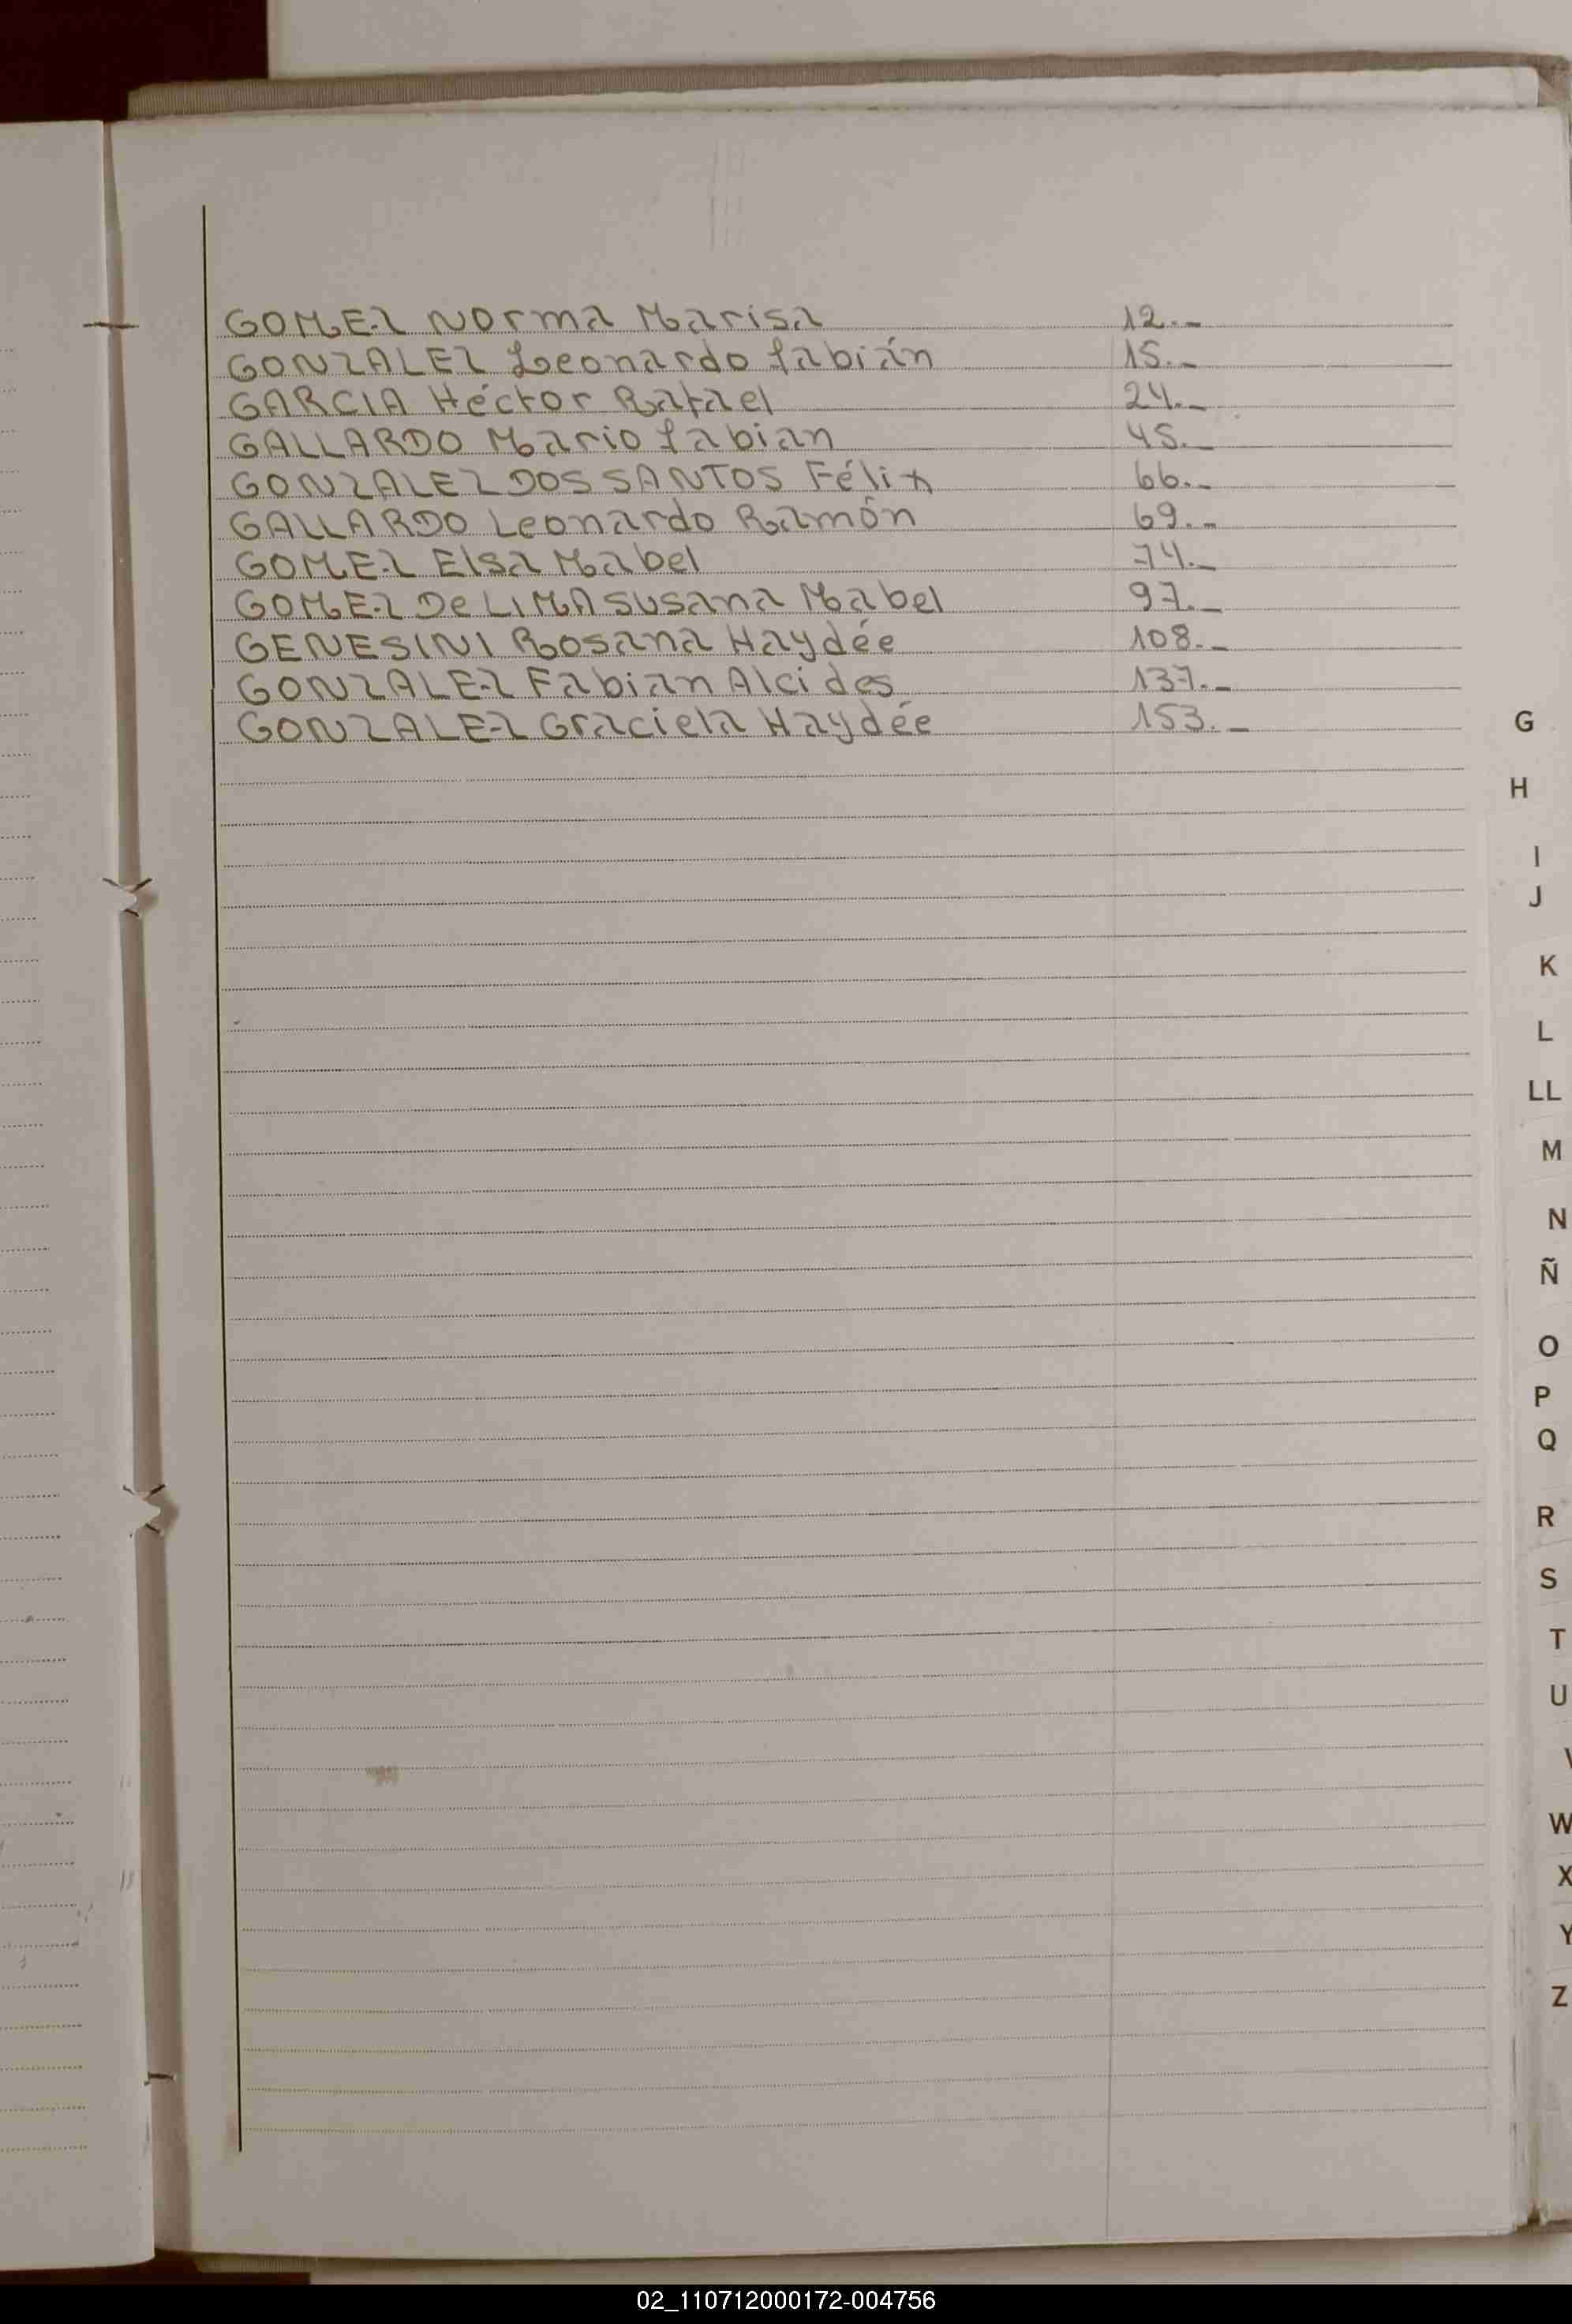 GOMEZ Norma Marisa 12._
GONZALEZ Leonardo fabián 15._
GARCIA Héctor Rafael 24._
GALLARDO Mario fabian 45._
GONZALEZ DOS SANTOS Félix 66._
GALLARDO Leonardo Ramón 69._
GOMEZ Elsa Mabel 74._
GOMEZ De LIMA Susana Mabel 97._
GENESINI Rosana Haydée 108._
GONZALEZ Fabian Alcides 137._
GONZALEZ Graciela Haydée 153._
G
H
I
J
K
L
LL
M
N
Ñ
O
P
Q
R
S
T
U
W
X
Y
Z
02_110712000172-004756